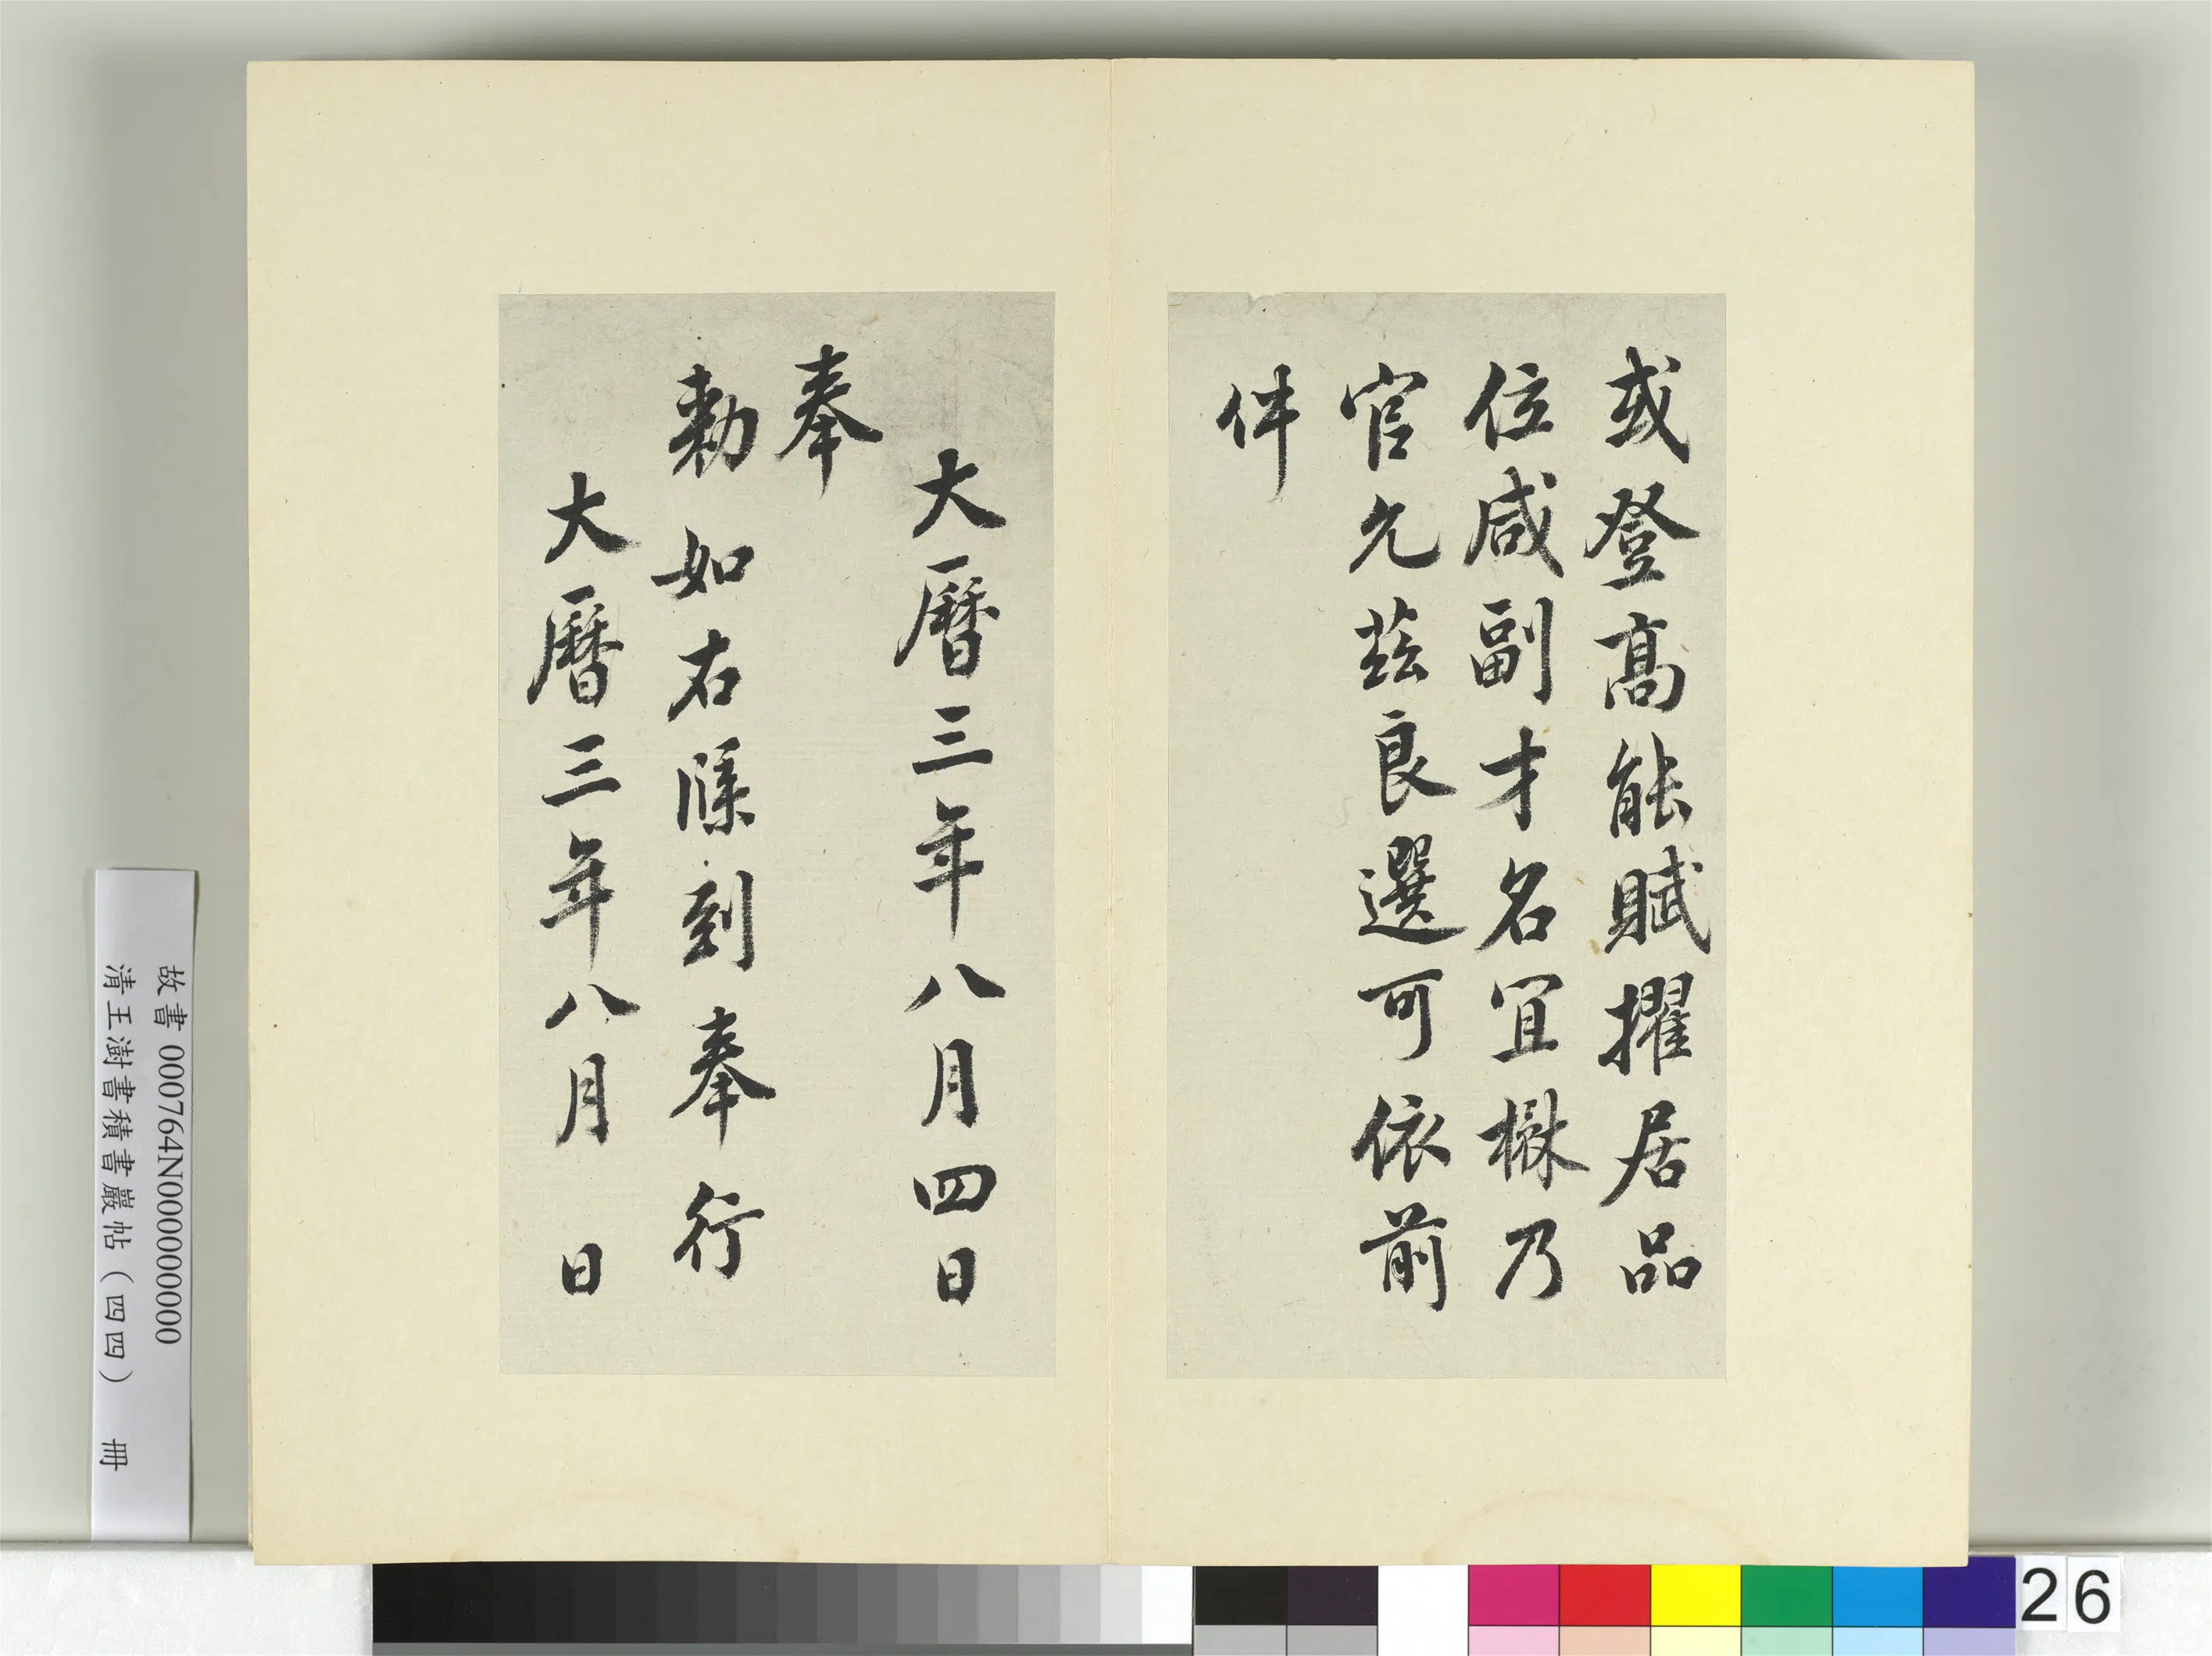 或登高能賦擢居品
位咸副才名宜楙乃
官允茲良選可依前
件
大曆三年八月四日
奉
勅如右牒到奉行
大曆三年八月 日
故書 000764N000000000
清王澍書積書巖帖(四四) 冊
26